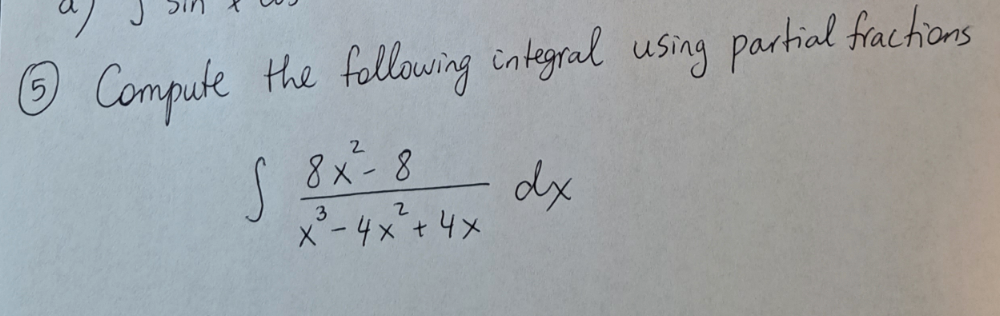 a) ∫ sin x
⑤ Compute the following integral using partial fractions
∫ (8x² - 8)/(x³ - 4x² + 4x) dx